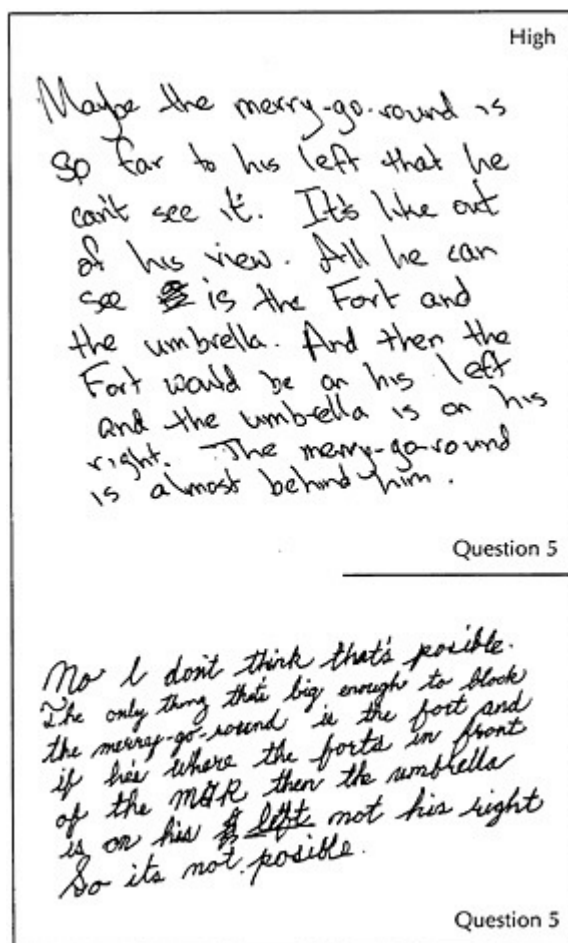 High
Maybe the merry-go-round is
so far to his left that he
can't see it. It's like out
of his view. All he can
see is the Fort and
the umbrella. And then the
Fort would be on his left
and the umbrella is on his
right. The merry-go-round
is almost behind him.
Question 5
No I don't think that's posible.
The only thing that's big enough to block
the merrey-go-round is the fort and
if he's where the forts in front
of the MGR then the umbrella
is on his left not his right
So its not posible.
Question 5